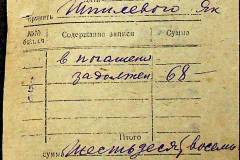 принять Шпилевого Як
№№ бал.сч. Содержание записи Сумма
в погашени
задолжен 68 —
Итого
сумма Шестьдесят восемь